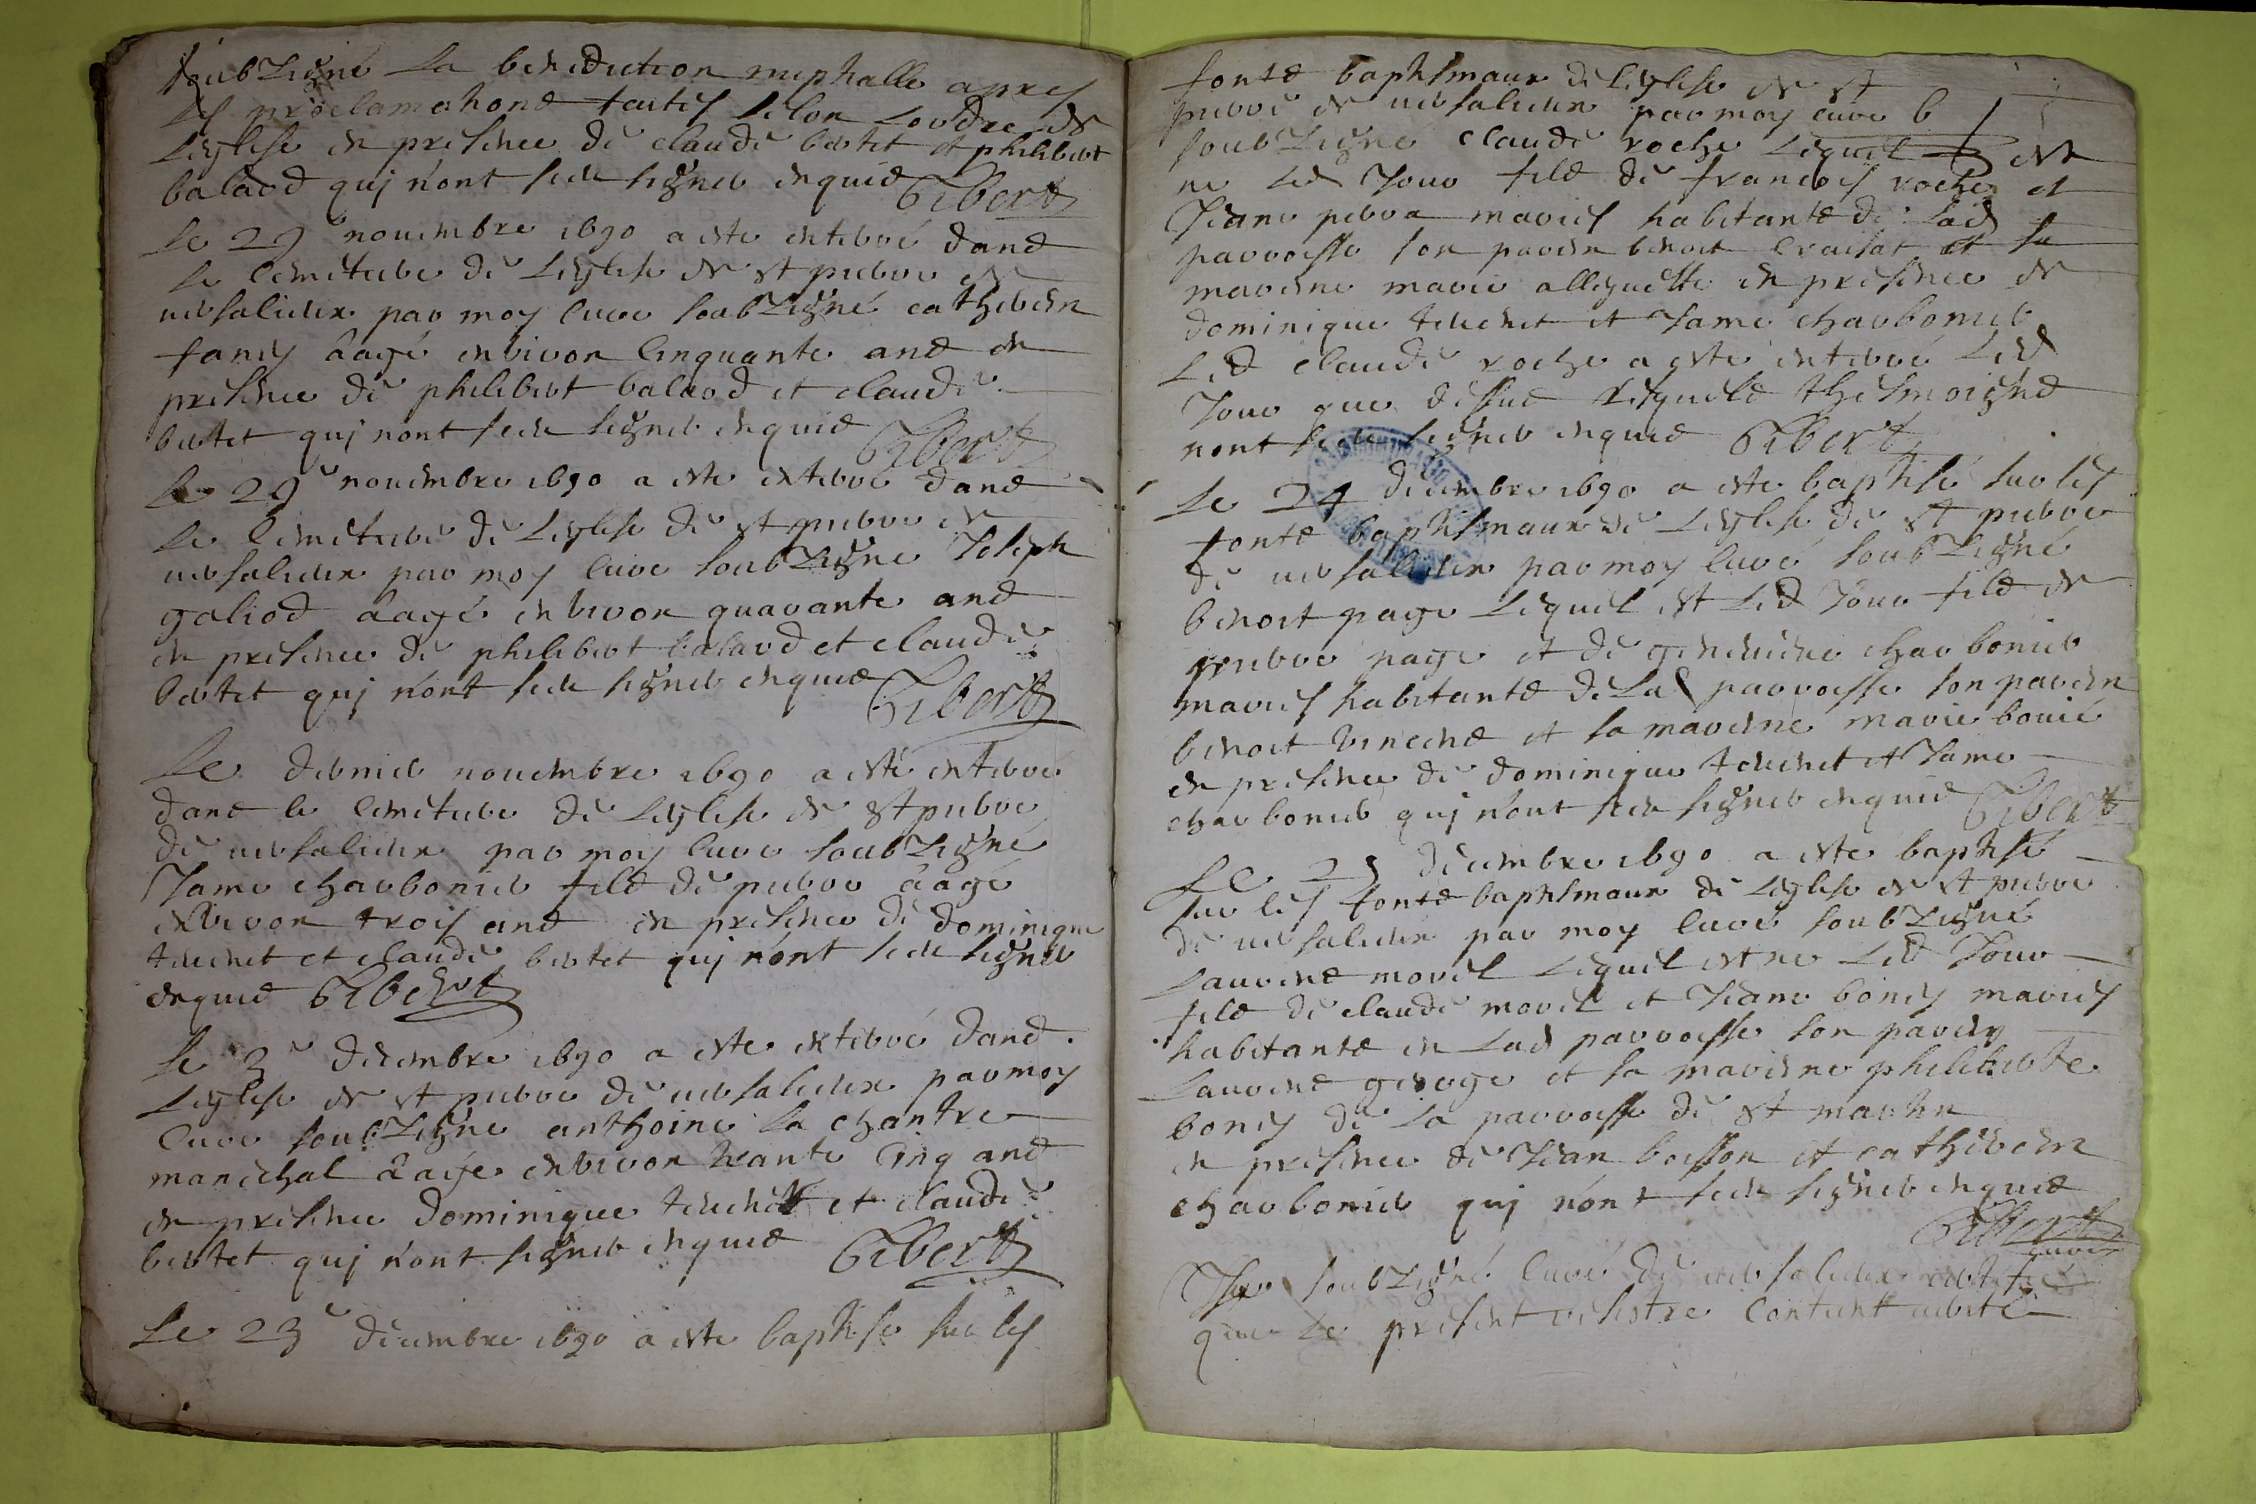 soubZigné La benediction nuptialle apres
les proclamations faites selon Lordre de
Leglise en presence de claude bertet et philibert
balaod quj n'ont sceu signer enquis Gibert
Le 29e nouembre 1690 a este enterré dans
le Cimetiere de Leglise de st pierre de
uersalieux par moy Curé soubZigné catherin
fancy âagé enbiron Cinquante ans en
presence de philibert balaod et claude
bertet quj nont sceu signer enquis Gibert
Le 29e nouembre 1690 a este enterré dans
Le Cimetiere de Leglise de st pierre de
uersalieux par moy Curé soubZigné Joseph
galiod âagé enbiron quarante ans
en presence de philibert balaod et claude
bertet quj n'ont sceu signer enquis Gibert
Le dernier nouembre 1690 a esté enterré
dans le Cimetiere de Leglise de st pierre
de uersalieux par moy Curé soubZigné
Jame charbonier fils de pierre âagé
enbiron trois ans en presence de dominique
teuenet et claude bertet quj n'ont sceu signer
enquis Gibert
Le 3e decembre 1690 a este enterré dans
Leglise de st pierre de uersalieux par moy
Curé soubZigné anthoine La chantre
marechal âagé enbiron trante Cinq ans
en presence dominique teuenet et claude
bertet quj n'ont signer enquis Gibert
Le 23e decembre 1690 a este baptisé sur les
fonts baptismaux de Leglise de st
pierre de uersalieux par moy curé
soubZigné claude roche Lequel este
ne Led Jour fils de francois roche et
Jeane perra maries habitants de Lad
parroisse son parein benoit Craisat et sa
mareine marie alleguette en presence de
dominique teuenet et Jame charbonier
Led claude roche a este enterré Led
Jour que dessus Lesquels thesmoigns
nont sceu signer enquis Gibert
Le 24 decembre 1690 a este baptisé sur les
fonts baptismaux de Leglise de st pierre
de uersalieux par moy Curé soubZigné
benoit page Lequel est Led Jour fils de
pierre page et de geneuieue charbonier
maries habitants de Lad parroisse son parein
benoit Vincent et sa mareine marie bouié
en presence de dominique teuenet et Jame
charbonier quj n'ont sceu signer enquis Gibert
Le 25 decembre 1690 a este baptisé
sur les fonts baptismaux de Leglise de st pierre
de uersalieux par moy Curé soubZigné
Laurent morel Lequel est ne Led Jour
fils de claude morel et Jeane boney maries
habitants en Lad parroisse son parein
Laurent george et sa mareine philiberte
boney de La parroisse de st martin
en presence de Jean boisson et catherin
charbonier quj n'ont sceu signer enquis
Gibert
curé
Je soubZigné Curé de uersalieux certifie
que Le present registre Contient uerité